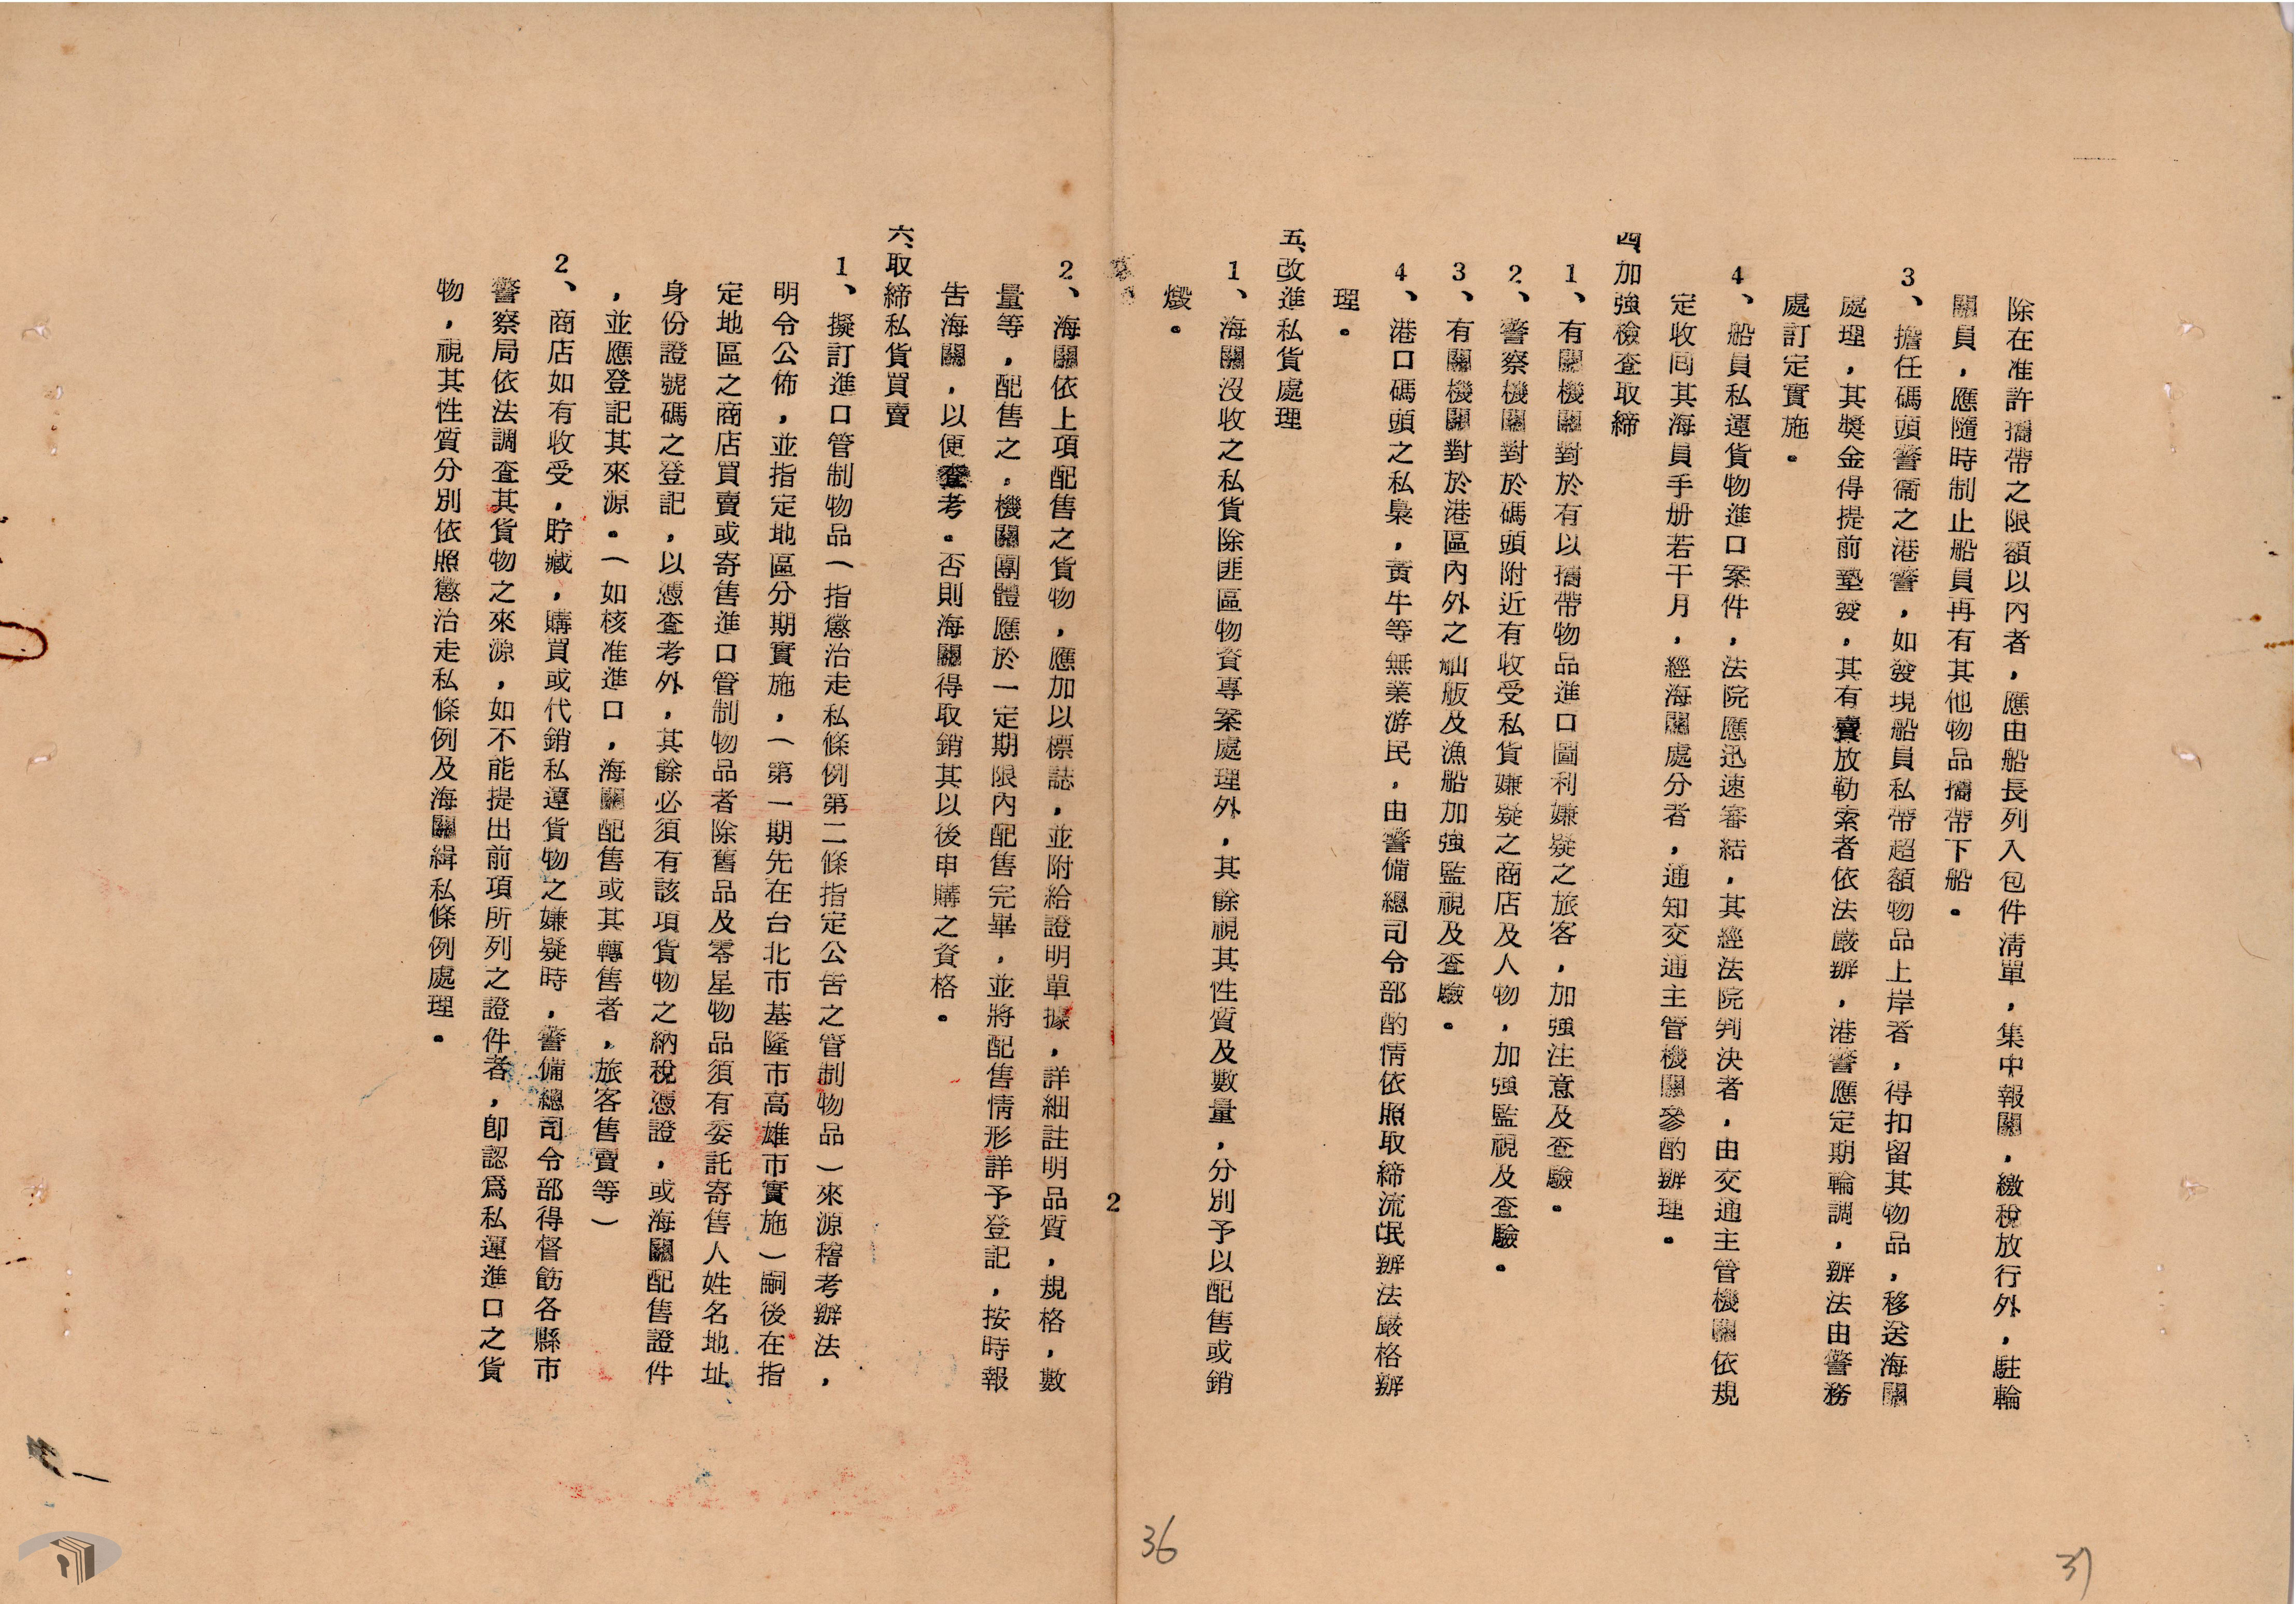 除在准許攜帶之限額以內者，應由船長列入包件清單，集中報關，繳稅放行外，駐輪
關員，應隨時制止船員再有其他物品攜帶下船。
3、擔任碼頭警衞之港警，如發現船員私帶超額物品上岸者，得扣留其物品，移送海關
處理，其獎金得提前墊發，其有賣放勒索者依法嚴辦，港警應定期輪調，辦法由警務
處訂定實施。
4、船員私運貨物進口案件，法院應迅速審結，其經法院判決者，由交通主管機關依規
定收囘其海員手册若干月，經海關處分者，通知交通主管機關參酌辦理。
四、加強檢查取締
1、有關機關對於有以攜帶物品進口圖利嫌疑之旅客，加強注意及查驗。
2、警察機關對於碼頭附近有收受私貨嫌疑之商店及人物，加強監視及查驗。
3、有關機關對於港區內外之舢舨及漁船加強監視及查驗。
4、港口碼頭之私梟，黃牛等無業游民，由警備總司令部酌情依照取締流氓辦法嚴格辦
理。
五、改進私貨處理
1、海關沒收之私貨除匪區物資專案處理外，其餘視其性質及數量，分別予以配售或銷
燬。
2
2、海關依上項配售之貨物，應加以標誌，並附給證明單據，詳細註明品質，規格，數
量等，配售之。機關團體應於一定期限內配售完畢，並將配售情形詳予登記，按時報
告海關，以便查考。否則海關得取銷其以後申購之資格。
六、取締私貨買賣
1、擬訂進口管制物品（指懲治走私條例第二條指定公告之管制物品）來源稽考辦法，
明令公佈，並指定地區分期實施，（第一期先在台北市基隆市高雄市實施）嗣後在指
定地區之商店買賣或寄售進口管制物品者除舊品及零星物品須有委託寄售人姓名地址、
身份證號碼之登記，以憑查考外，其餘必須有該項貨物之納稅憑證，或海關配售證件
，並應登記其來源。（如核准進口，海關配售或其轉售者，旅客售賣等）
2、商店如有收受，貯藏，購買或代銷私運貨物之嫌疑時，警備總司令部得督飭各縣市
警察局依法調查其貨物之來源，如不能提出前項所列之證件者，卽認爲私運進口之貨
物，視其性質分別依照懲治走私條例及海關緝私條例處理。
36
37